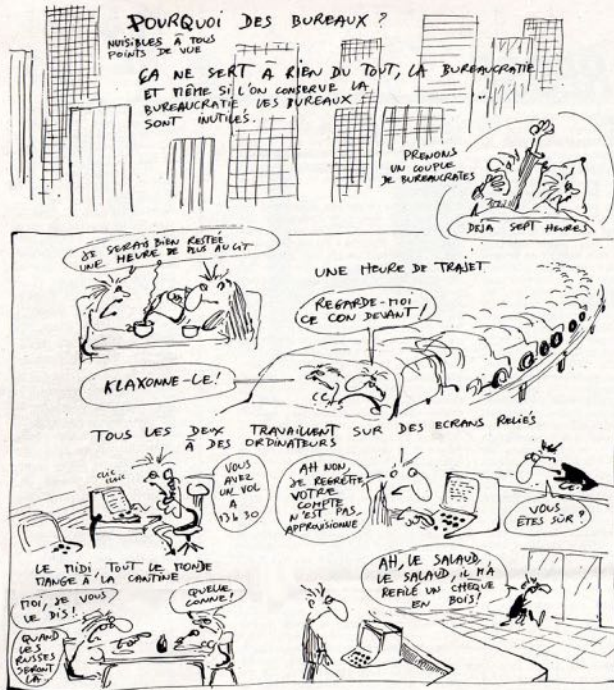 POURQUOI DES BUREAUX ?
NUISIBLES À TOUS
POINTS DE VUE
ÇA NE SERT À RIEN DU TOUT, LA BUREAUCRATIE
ET MÊME SI L'ON CONSERVE LA
BUREAUCRATIE, LES BUREAUX
SONT INUTILES.
PRENONS
UN COUPLE
DE BUREAUCRATES
DEJA SEPT HEURES
JE SERAIS BIEN RESTÉE
UNE HEURE DE PLUS AU LIT
UNE HEURE DE TRAJET
REGARDE-MOI
CE CON DEVANT!
KLAXONNE-LE!
TOUS LES DEUX TRAVAILLENT SUR DES ECRANS RELIÉS
À DES ORDINATEURS
CLIC
CLAC
VOUS
AVEZ
UN VOL
A
13h30
AH NON,
JE REGRETTE
VOTRE
COMPTE
N'EST PAS
APPROVISIONNE
VOUS
ÊTES SÛR?
LE MIDI, TOUT LE MONDE
MANGE À LA CANTINE
MOI, JE VOUS
LE DIS!
QUAND
LES
RUSSES
SERONT
LÀ...
QUELLE
CONNE!
AH, LE SALAUD,
LE SALAUD, IL M'A
REFILÉ UN CHEQUE
EN BOIS!